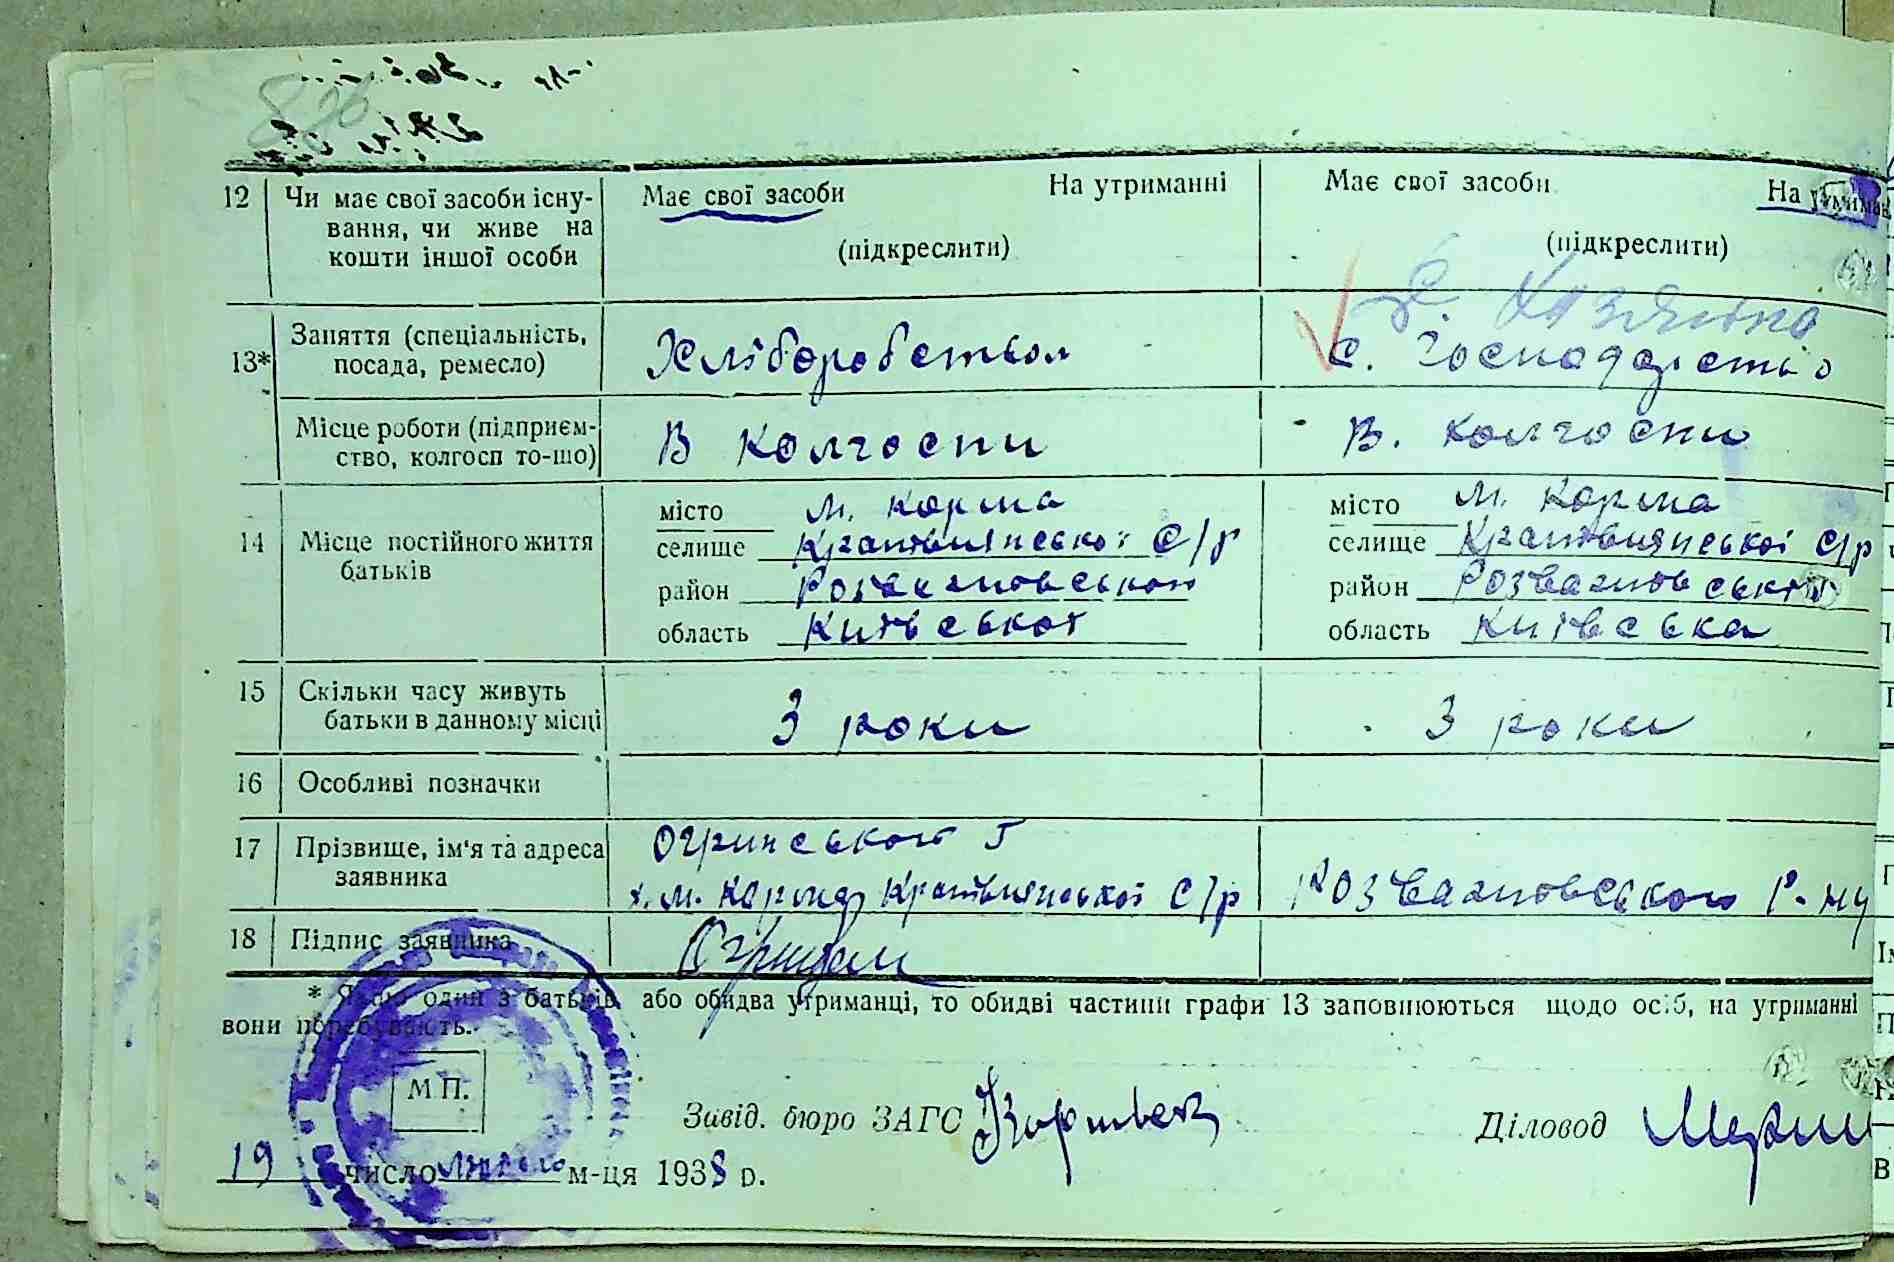 826
12 Чи має свої засоби існу-
вання, чи живе на
кошти іншої особи
Має свої засоби На утриманні
(підкреслити)
Має свої засоби На
(підкреслити)
13* Заняття (спеціальність,
посада, ремесло)
Хліборобством
с. Хазяйство
с. господарство
Місце роботи (підприєм-
ство, колгосп то-що)
В колгоспи
В. колгоспи
14 Місце постійного життя
батьків
місто м. Корма
селище с/р
район
область Київської
місто м. Корма
селище с/р
район
область Київська
15 Скільки часу живуть
батьки в данному місці
3 роки
3 роки
16 Особливі позначки
17 Прізвище, ім'я та адреса
заявника
Огринського
с/р р-ну
18 Підпис заявника
* Якщо один з батьків, або обидва утриманці, то обидві частини графи 13 заповнюються щодо осіб, на утриманні
вони перебувають.
М П.
Завід. бюро ЗАГС
Діловод
19 число м-ця 1938 р.